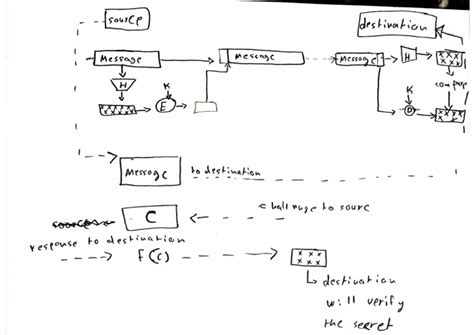 source
destination
Message
Message
Message
H
H
K
E
K
D
compare
Message
to destination
C
challenge to source
response to destination
f(c)
destination
will verify
the secret